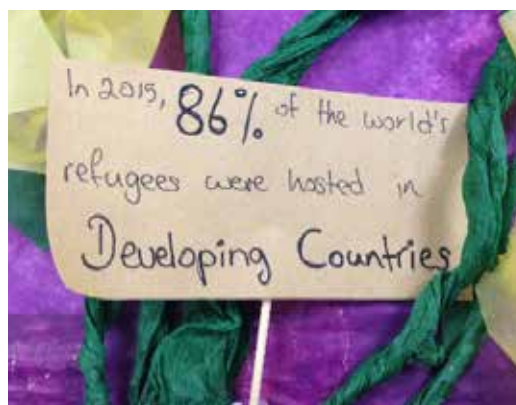 In 2015, 86% of the world's
refugees were hosted in
Developing Countries